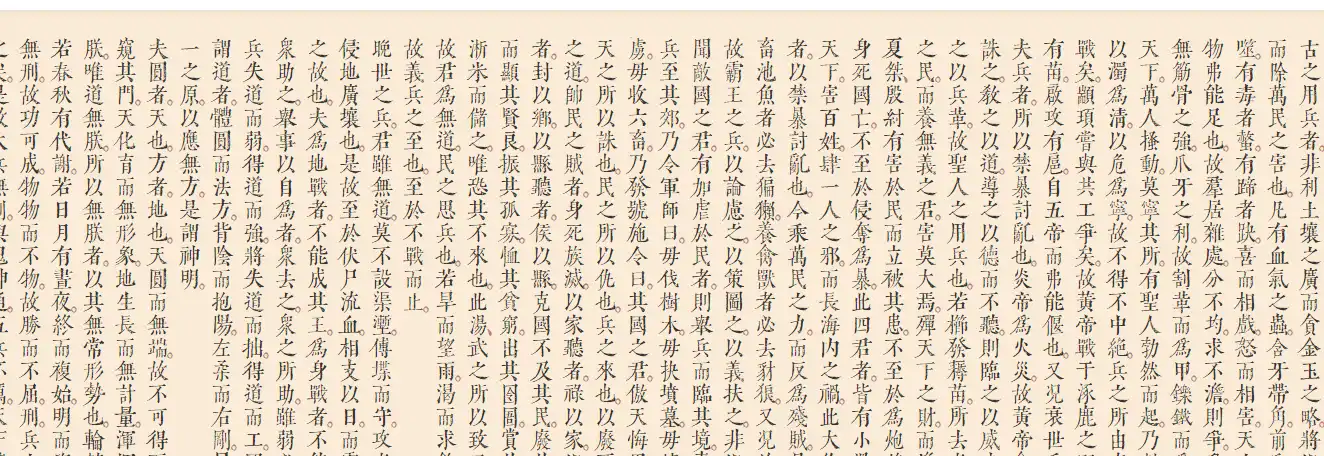 古之用兵者非利土壤之廣而貪金玉之略將
而除萬民之害也。凡有血氣之蟲含牙帶角前
噬。有毒者螫。有蹄者趹。喜而相戲怒而相害天
物弗能足也。故羣居雜處分不均。求不澹。則爭。
無筋骨之強。爪牙之利。故割革而爲甲。鑠鐵而
天下。萬人搔動莫寧其所有聖人勃然而起乃
以濁爲清。以危爲寧。故不得不中絕。兵之所由
戰矣。顓頊嘗與共工爭矣。故黃帝戰于涿鹿之
有苗。啟攻有扈。自五帝而弗能偃也。又況衰世
夫兵者。所以禁暴討亂也。炎帝爲火災。故黃帝
誅之。敎之以道。導之以德而不聽。則臨之以威
之以兵革。故聖人之用兵也。若櫛發耨苗。所去
之民。而養無義之君。害莫大焉。殫天下之財而
夏桀。殷紂有害於民而立被其患。不至於爲炮
身死國亡。不至於侵奪爲暴。此四君者。皆有小
天下。害百姓。肆一人之邪。而長海內之禍。此大
者。以禁暴討亂也。今乘萬民之力。而反爲殘賊。
畜池魚者必去猵獺。養禽獸者必去豺狼。又況
故霸王之兵。以論慮之。以策圖之。以義扶之。非
聞敵國之君。有加虐於民者。則舉兵而臨其境。
兵至其郊。乃令軍師曰。毋伐樹木。毋抉墳墓。毋
虜。毋收六畜。乃發號施令曰。其國之君。傲天侮
天之所以誅也。民之所以仇也。兵之來也。以廢
之道。帥民之賊者。身死族滅。以家聽者。祿以家
者。封以鄉。以縣聽者。侯以縣。克國不及其民。廢
而顯其賢良。振其孤寡。恤其貧窮。出其囹圄。賞
淅米而儲之。唯恐其不來也。此湯武之所以致
故君爲無道。民之思兵也。若旱而望雨。渴而求
故義兵之至也。至於不戰而止。
晚世之兵。君雖無道。莫不設渠壍。傅堞而守。攻
侵地廣壤也。是故至於伏尸流血。相支以日。而
之故也。夫爲地戰者。不能成其王。爲身戰者。不
衆助之。舉事以自爲者。衆去之。衆之所助。雖弱
兵失道而弱。得道而強。將失道而拙。得道而工
謂道者。體圓而法方。背陰而抱陽。左柔而右剛。
一之原。以應無方。是謂神明。
夫圓者。天也。方者。地也。天圓而無端。故不可得
窺其門。天化育而無形象。地生長而無計量。渾
朕。唯道無朕。所以無朕者。以其無常形勢也。輪
若春秋有代謝。若日月有晝夜。終而複始。明而
無刑。故功可成。物物而不物。故勝而不屈。刑。兵